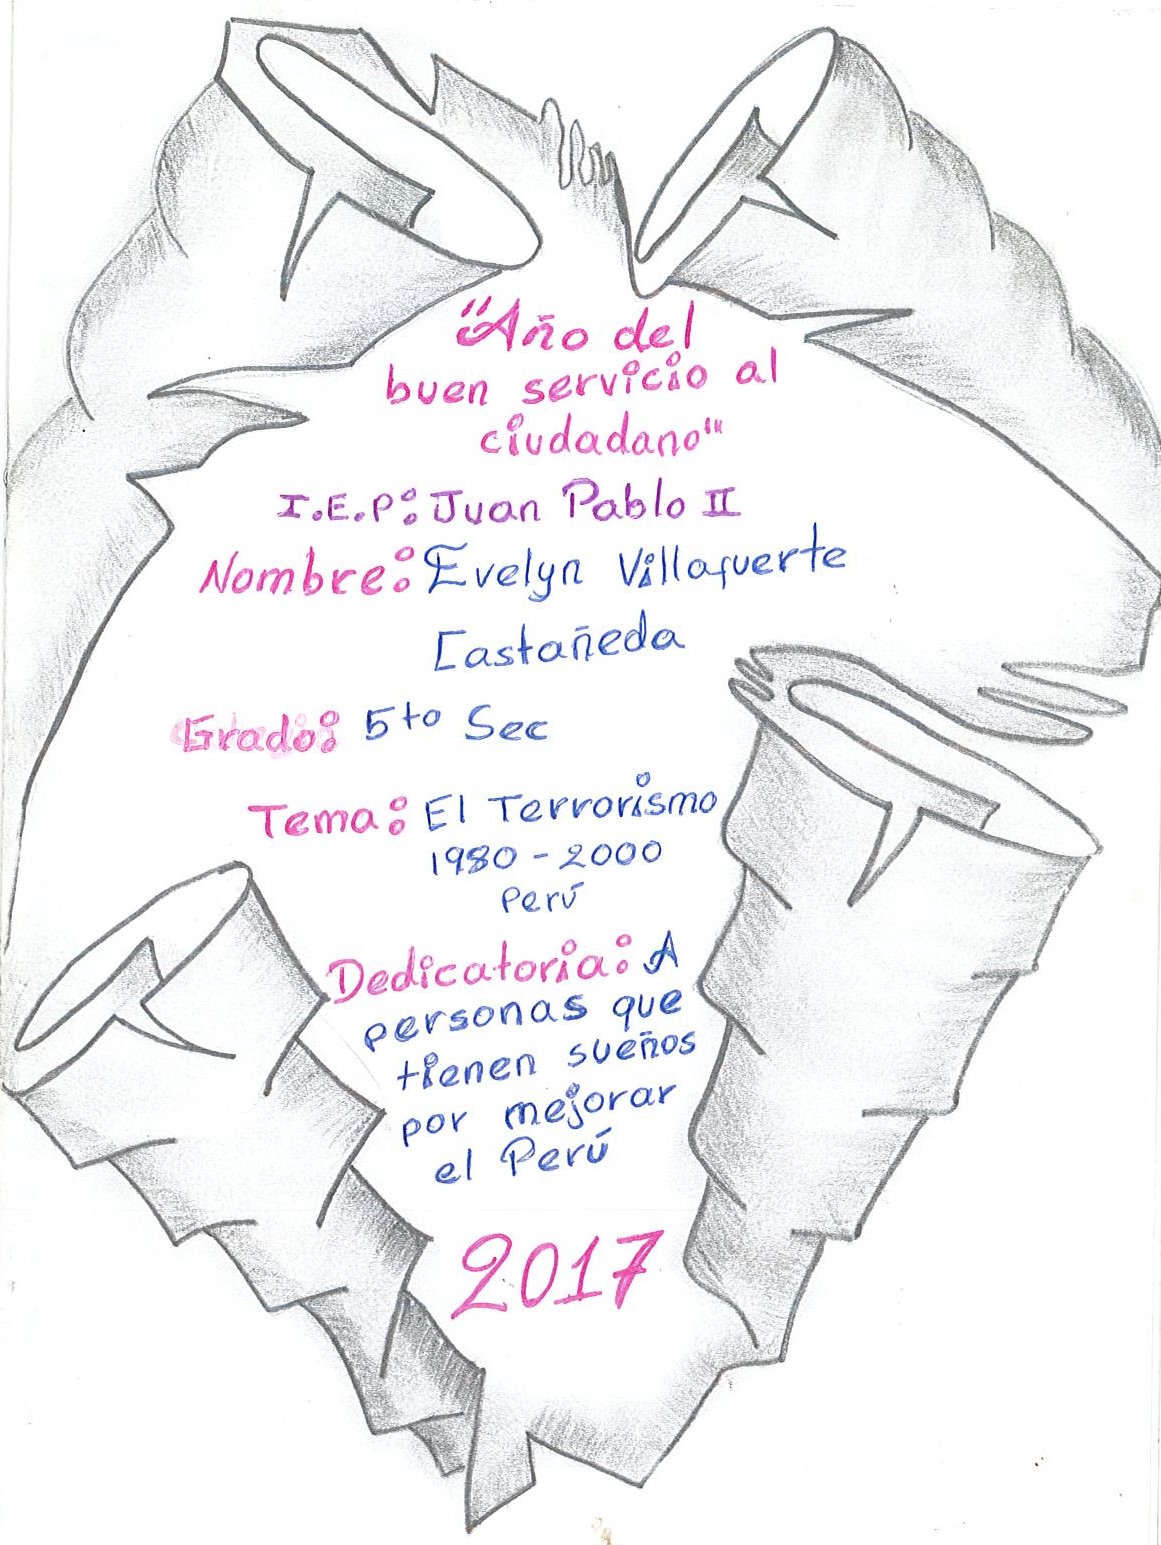 "Año del
buen servicio al
ciudadano"
I.E.P: Juan Pablo II
Nombre: Evelyn Villafuerte
Castañeda
Grado: 5to Sec
Tema: El Terrorismo
1980 - 2000
Perú
Dedicatoria: A
personas que
tienen sueños
por mejorar
el Perú
2017